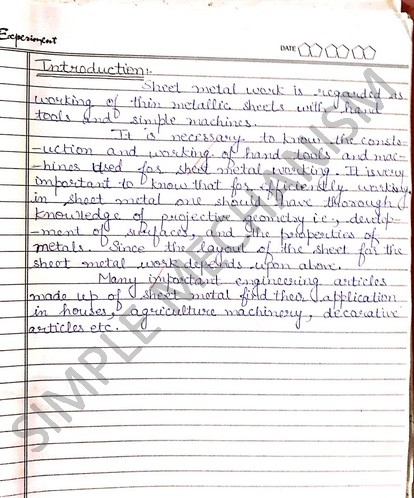 Experiment
DATE
Introduction:-
Sheet metal work is regarded as
working of thin metallic sheets with hand
tools and simple machines.
It is necessary to know the consts-
-uction and working of hand tools and mac-
-hines used for sheet metal working. It is very
important to know that for efficiently working
in sheet metal one should have thorough
knowledge of projective geometry i.e., develop-
-ment of surfaces, and the properties of
metals. Since the layout of the sheet for the
sheet metal work depends upon above.
Many important engineering articles
made up of sheet metal find their application
in houses, agriculture machinery, decorative
articles etc.
SIMPLE MECHANISM